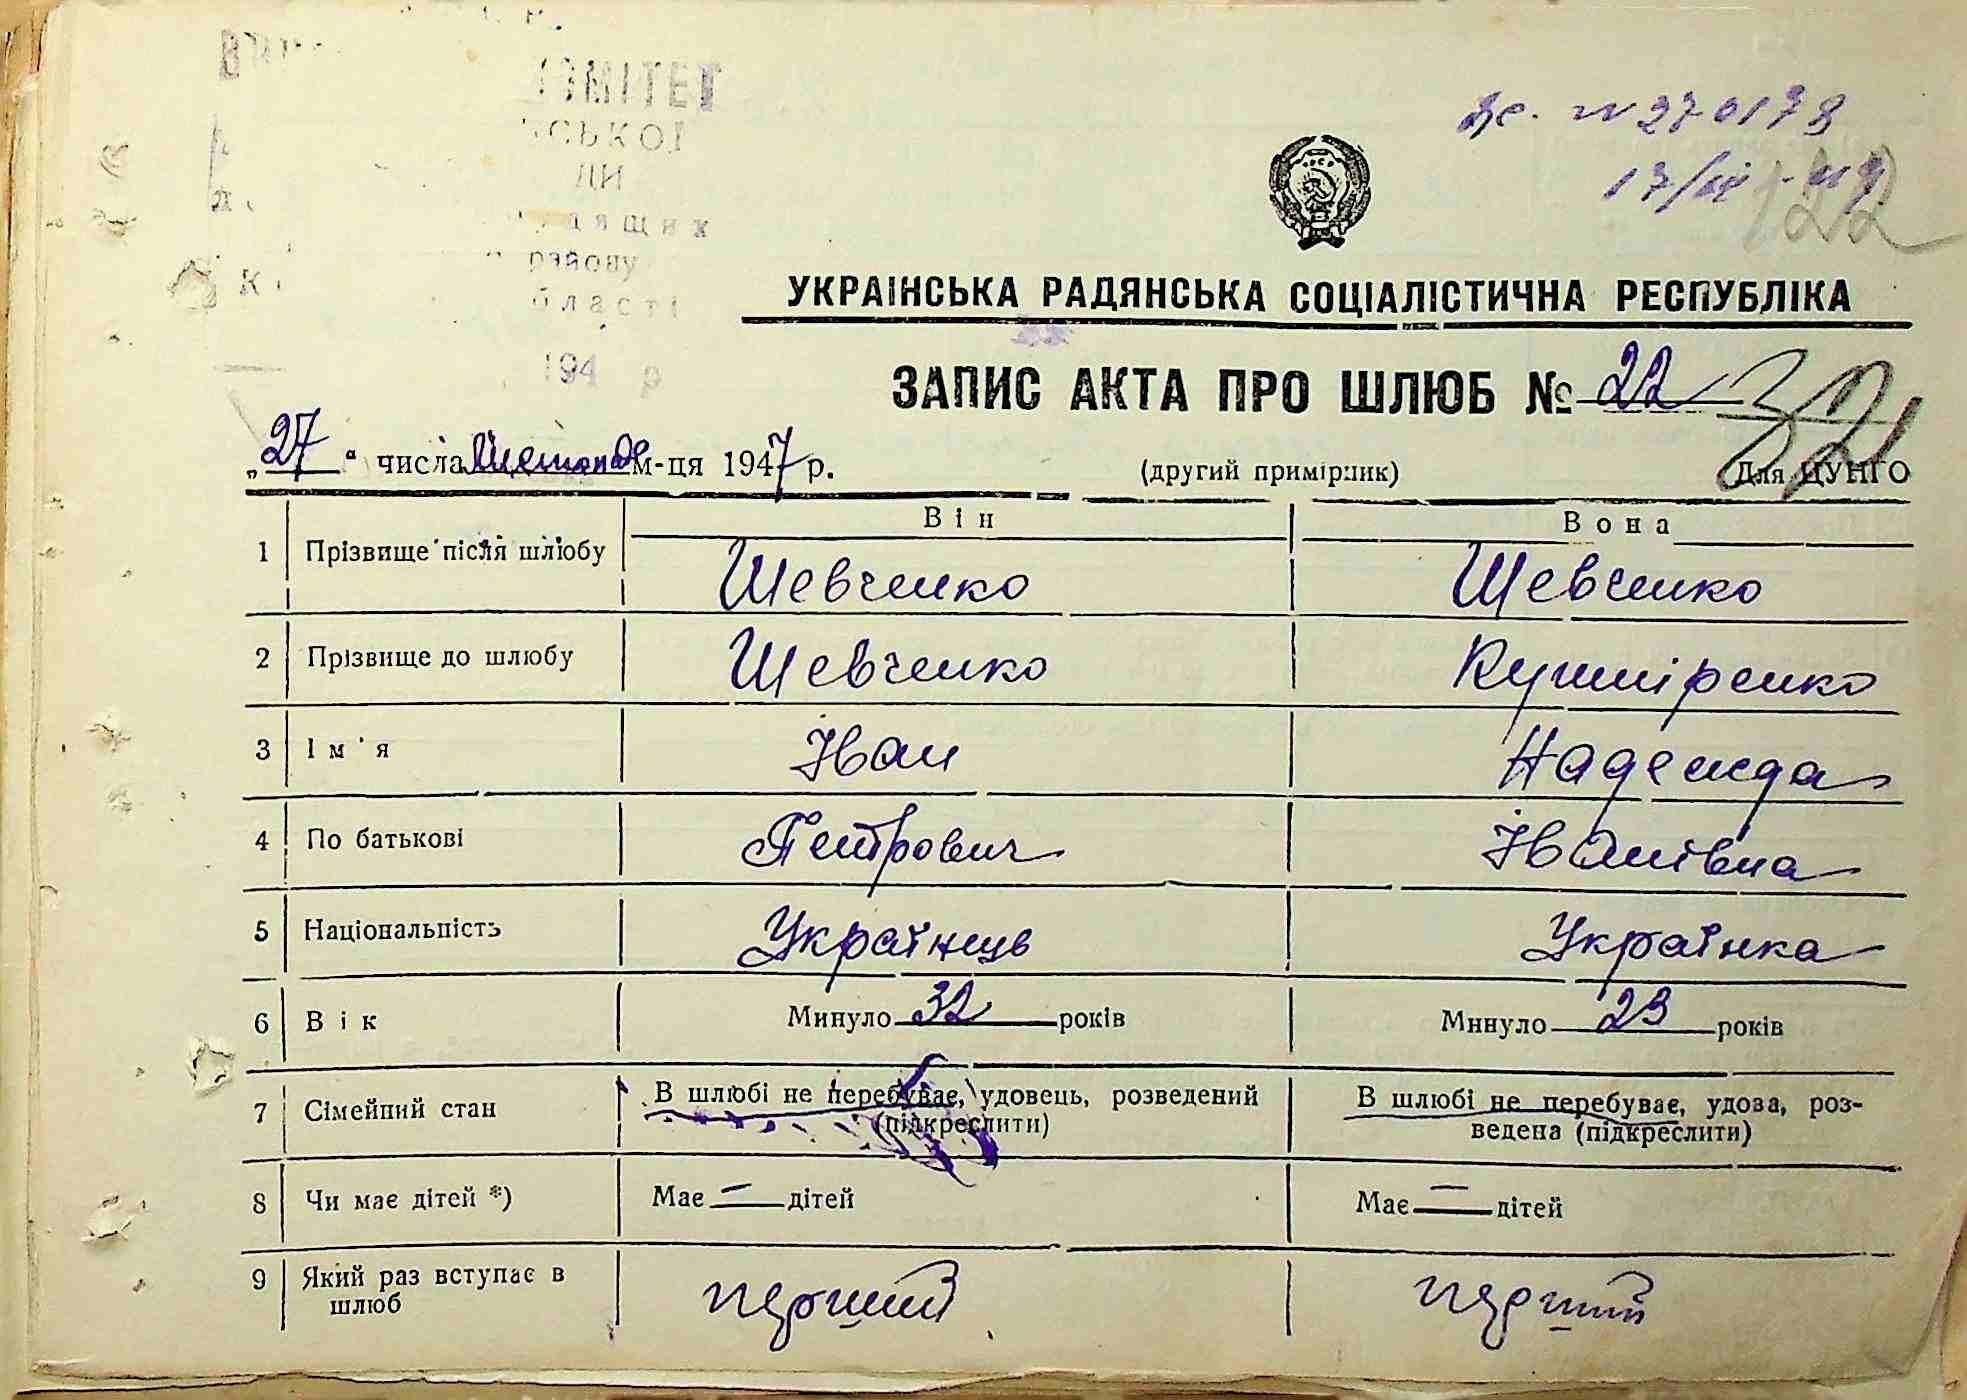 ОМІТЕТ
СЬКОЇ
ДИ
дящих
району
бласті
194 р
№ 270178
122
УКРАЇНСЬКА РАДЯНСЬКА СОЦІАЛІСТИЧНА РЕСПУБЛІКА
ЗАПИС АКТА ПРО ШЛЮБ № 22
321
„27“ числа Листопада м-ця 1947 р. (другий примірник) Для ЦУНГО
Він Вона
1 Прізвище після шлюбу Шевченко Шевченко
2 Прізвище до шлюбу Шевченко Кушніренко
3 Ім'я Іван Надежда
4 По батькові Петрович Іванівна
5 Національність Українець Українка
6 Вік Минуло 32 років Минуло 23 років
7 Сімейний стан В шлюбі не перебуває, удовець, розведений (підкреслити) В шлюбі не перебуває, удова, роз-
ведена (підкреслити)
8 Чи має дітей *) Має — дітей Має — дітей
9 Який раз вступає в шлюб перший перший